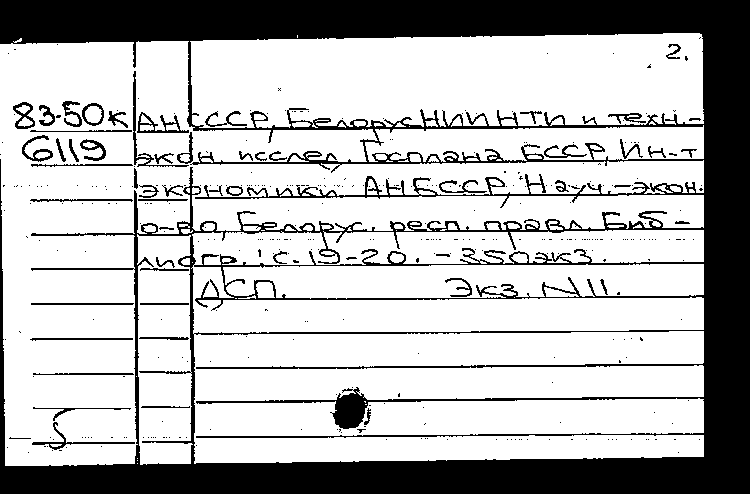 2.
83-50к АН СССР, БелорусНИИНТИ и техн.-
6119 экон. исслед. Госплана БССР, Ин-т
экономики АН БССР, Науч.-экон.
о-во, Белорус. респ. правл. Биб-
лиогр.: с. 19-20. - 350экз.
ДСП. Экз. N11.
5